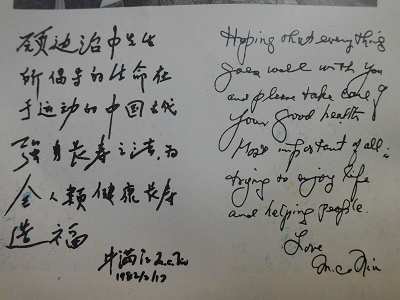 顾迪治中先生
所倡导的生命在
于运动的中国古代
强身长寿之法,为
全人类健康长寿
造福
牛满江
1982/2/17
Hoping that everything
goes well with you
and please take care of
your good health
Most important of all:
trying to enjoy life
and helping people.
Love